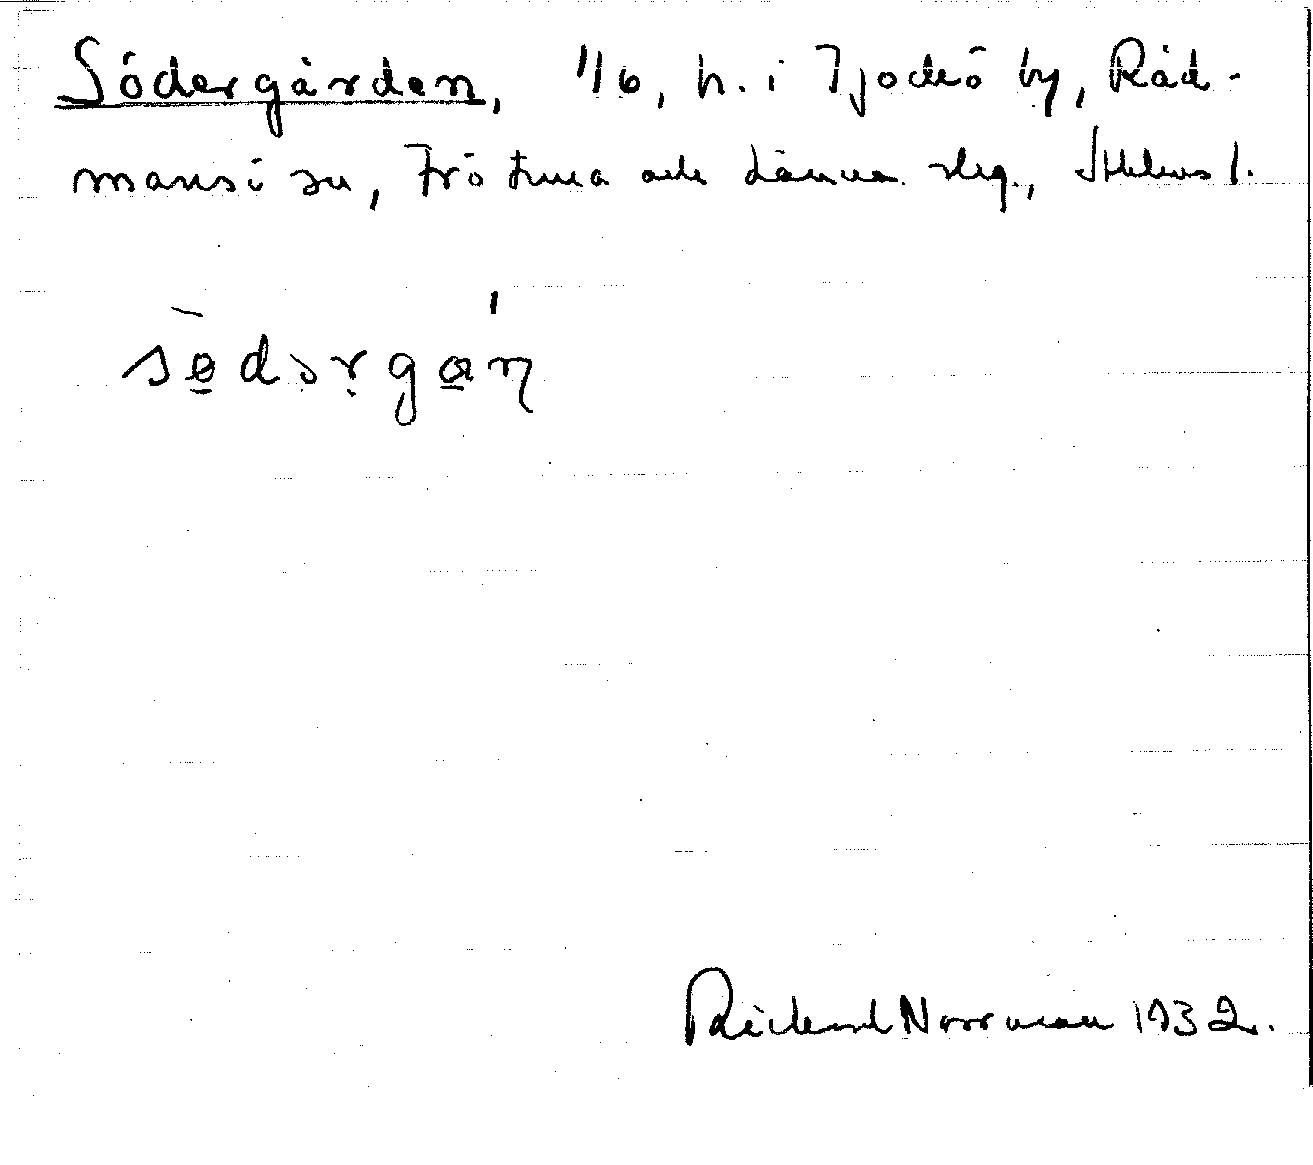 Södergården, 1/6, h. i Tjockö by, Råd-
mansö sn, Frötuna och Länna skg., Sthlms l.
sødərgɑn
Rickard Norrman 1932.